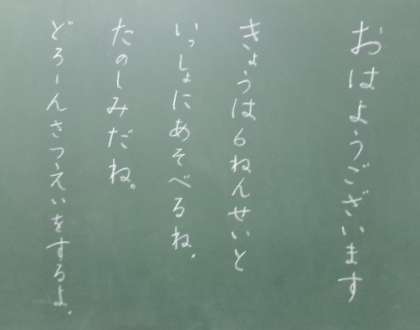 おはようございます
きょうは6ねんせいと
いっしょにあそべるね.
たのしみだね。
どろーんさつえいをするよ.